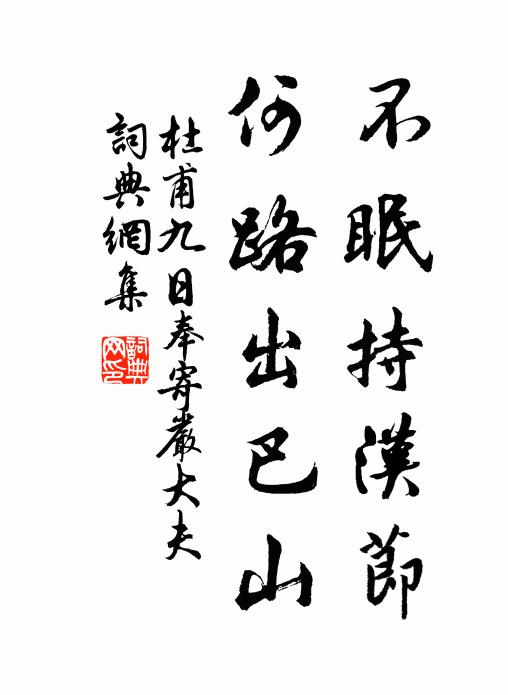 不眠持漢節
何路出巴山
杜甫九日奉寄嚴大夫
詞典網集
詞典網印